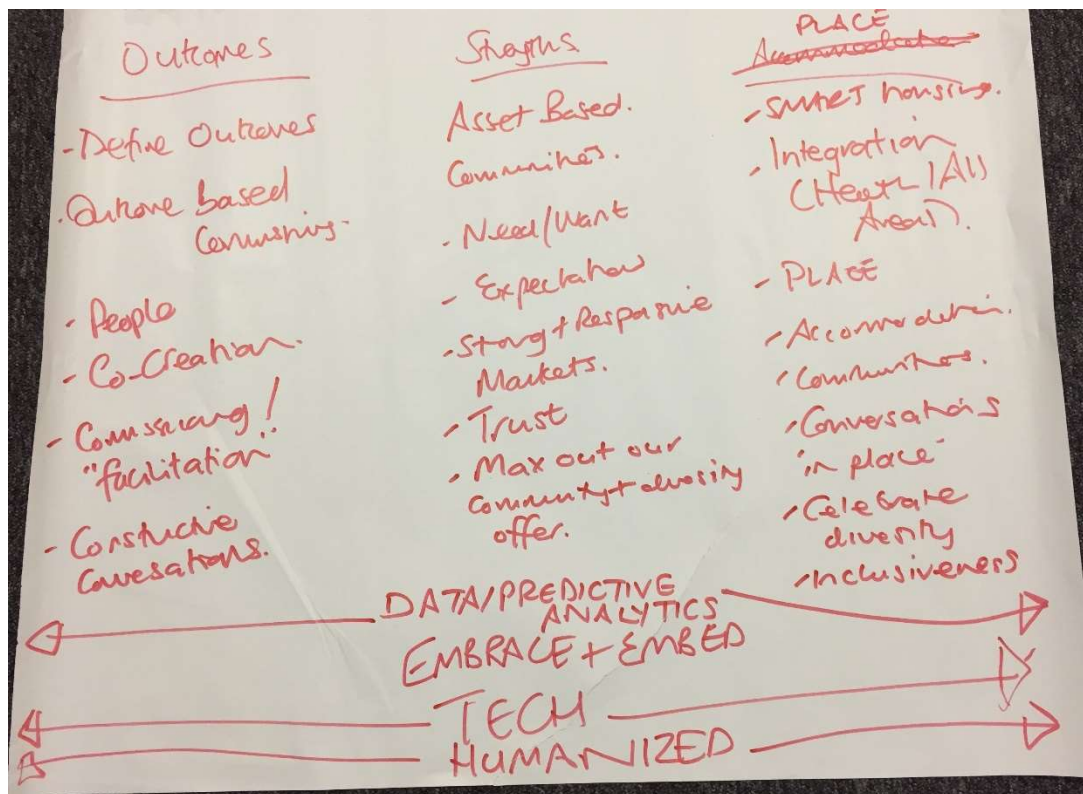 Outcomes
- Define Outcomes
- Outcome based
Commissioning.
- People
- Co-Creation.
- Commissioning /
"facilitation"
- Constructive
Conversations.
Strengths
Asset Based.
Communities.
- Need/Want
- Expectations
- Strong + Responsive
Markets.
- Trust
- Max out our
community + diversity
offer.
PLACE
Accommodation
- SMART housing.
- Integration
(Health / All
Areas).
- PLACE
- Accommodation.
- Communities.
- Conversations
'in place'
- Celebrate
diversity
- Inclusiveness
DATA/PREDICTIVE
ANALYTICS
EMBRACE + EMBED
TECH
HUMANIZED